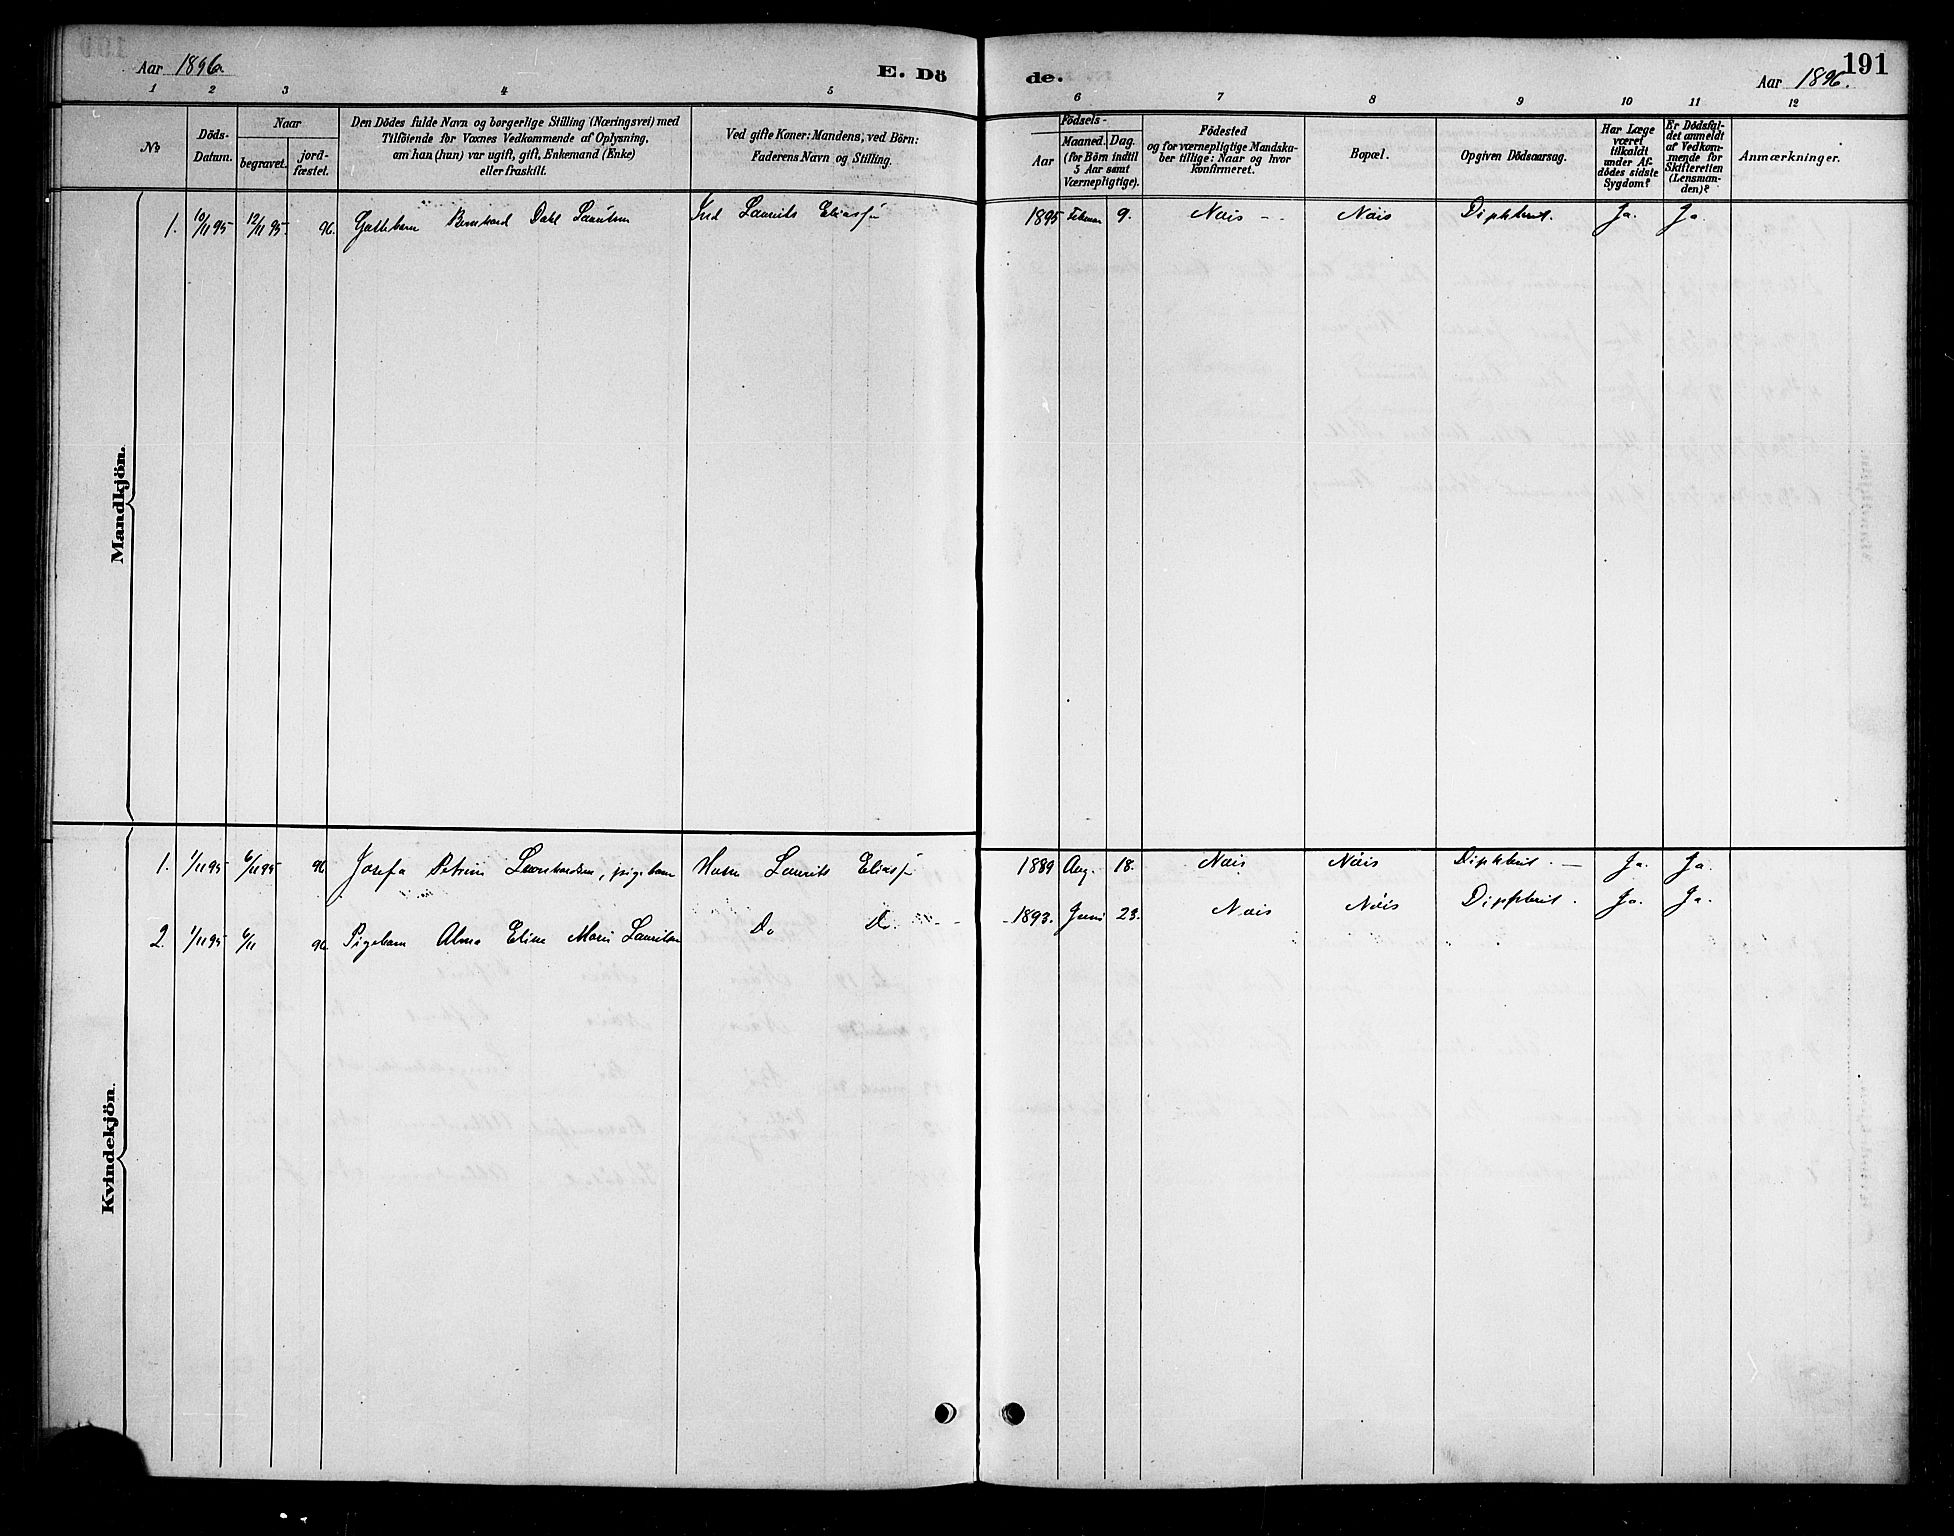 Aar 1896
E. Dö
de.
Aar 1896.
191
1 2 3 4 5 6 7 8 9 10 11 12
No
Döds-
Datum.
Naar
begravet.
jord-
fæstet.
Den Dödes fulde Navn og borgerlige Stilling (Næringsvei) med
Tilföiende for Voxnes Vedkommende af Oplysning,
om han (hun) var ugift, gift, Enkemand (Enke)
eller fraskilt.
Ved gifte Koner: Mandens, ved Börn:
Faderens Navn og Stilling.
Födsels-
Aar
Maaned.
Dag.
(for Börn indtil
5 Aar samt
Værnepligtige).
Födested
og for værnepligtige Mandska-
ber tillige: Naar og hvor
konfirmeret.
Bopæl.
Opgiven Dödsaarsag.
Har Læge
været
tilkaldt
under Af-
dödes sidste
Sygdom?
Er Dödsfal-
det anmeldt
af Vedkom-
mende for
Skifteretten
(Lensman-
den)?
Anmærkninger.
Mandkjön.
1. 10/11 95 12/11 95. 96. Guttebarn Bernhard Dahl Lauritsen Ind Laurits Eliass 1895 Februar 9. Nois Nois Diphtherit. Ja. Ja.
Kvindekjön.
1. 1/11 95 6/11 95 96 Josefa Petrine Leonhardine, pigebarn Laurits Eliass 1889 Aug. 18. Nois Nöis Diphtherit. Ja. Ja.
2. 1/11 95 6/11 96 Pigebarn Alma Eline Marie Lauritsen Do Do. 1893. Juni 23. Nois Nöis Diphtherit. Ja. Ja.